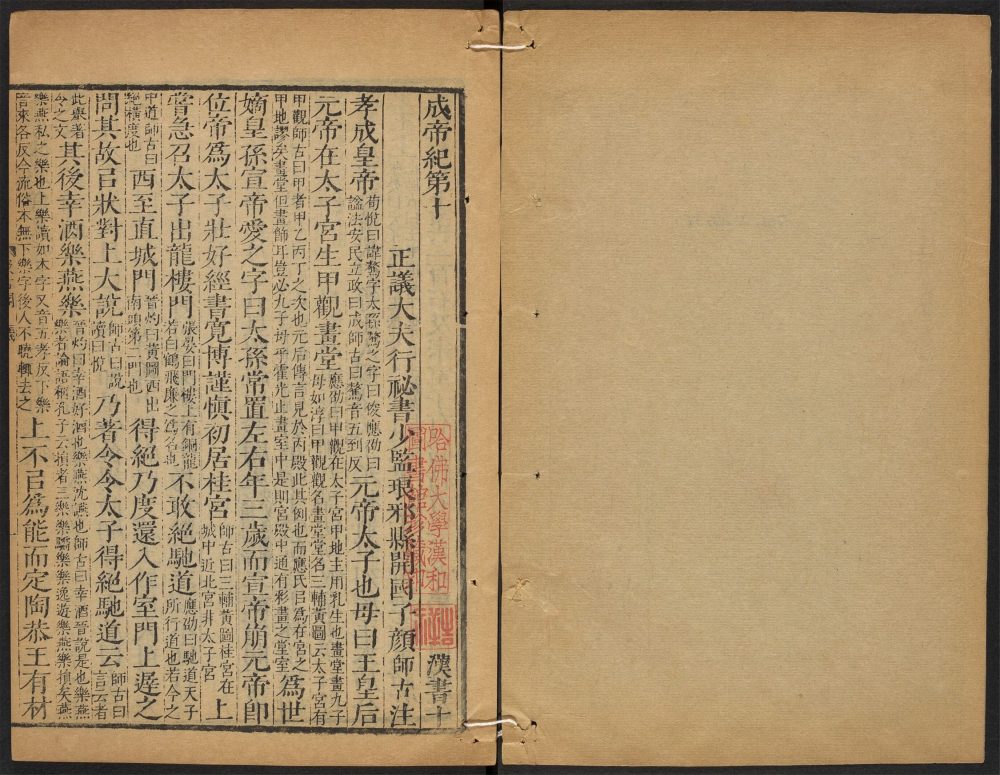 成帝紀第十 漢書十
正議大夫行祕書少監琅邪縣開國子顏師古注
哈佛大學漢和圖書館珍藏印
孝成皇帝荀悅曰諱驁字太孫驁之字曰俊應劭曰諡法安民立政曰成師古曰驁音五到反元帝太子也母曰王皇后
元帝在太子宮生甲觀畫堂應劭曰甲觀在太子宮甲地主用乳生也畫堂畫九子母如淳曰甲觀觀名畫堂堂名三輔黃圖云太子宮有
甲觀師古曰甲者甲乙丙丁之次也元后傳言見於丙殿此其例也而應氏㠯爲在宮之甲地謬矣畫堂但畫飾耳豈必九子母乎霍光止畫室中是則宮殿中通有彩畫之堂室爲世
嫡皇孫宣帝愛之字曰太孫常置左右年三歲而宣帝崩元帝卽
位帝爲太子壯好經書寬博謹愼初居桂宮師古曰三輔黃圖桂宮在城中近北宮非太子宮上
嘗急召太子出龍樓門張晏曰門樓上有銅龍若白鶴飛廉之爲名也不敢絕馳道應劭曰馳道天子所行道也若今之
中道師古曰絕橫度也西至直城門晉灼曰黃圖西出南頭第二門也得絕乃度還入作室門上遲之
問其故㠯狀對上大說師古曰說讀曰悅乃著令令太子得絕馳道云師古曰言云者
此舉著令之文其後幸酒樂燕樂晉灼曰幸酒好酒也樂燕沈讌也師古曰幸酒晉說是也樂燕樂者論語稱孔子云損者三樂樂驕樂樂逸遊樂燕樂損矣燕
樂燕私之樂也上樂讀如本字又音五孝反下樂音來各反今流俗本無下樂字後人不曉輒去之上不㠯爲能而定陶恭王有材